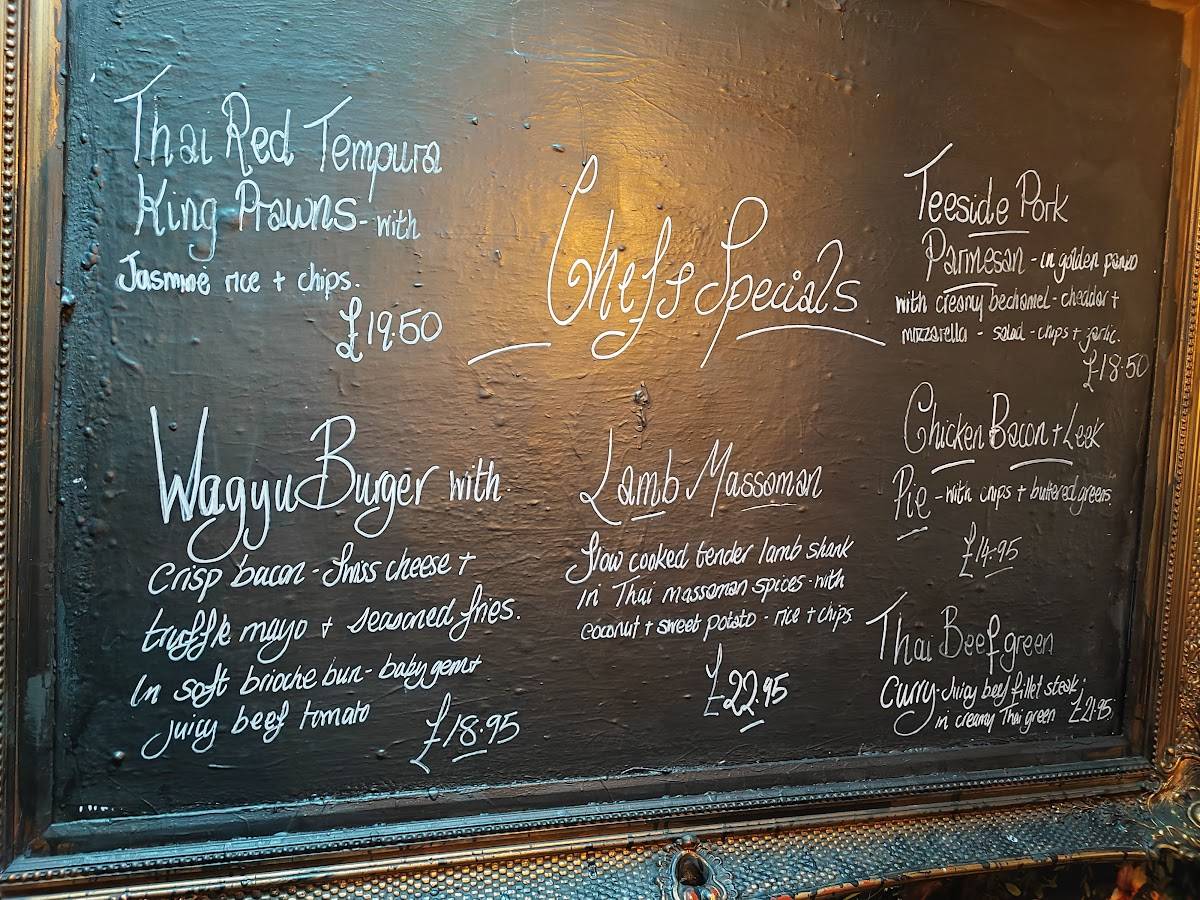 Chefs Specials
Thai Red Tempura
King Prawns - with
Jasmine rice + chips.
£19.50
Wagyu Burger with
crisp bacon - Swiss cheese +
truffle mayo + seasoned fries.
In soft brioche bun - baby gem +
juicy beef tomato
£18.95
Lamb Massaman
Slow cooked tender lamb shank
in Thai massaman spices - with
coconut + sweet potato - rice + chips
£22.95
Teeside Pork
Parmesan - in golden panko
with creamy bechamel - cheddar +
mozzarella - salad - chips + garlic.
£18.50
Chicken Bacon + Leek
Pie - with chips + buttered greens.
£14.95
Thai Beef green
Curry - Juicy beef fillet steak
in creamy Thai green £21.95